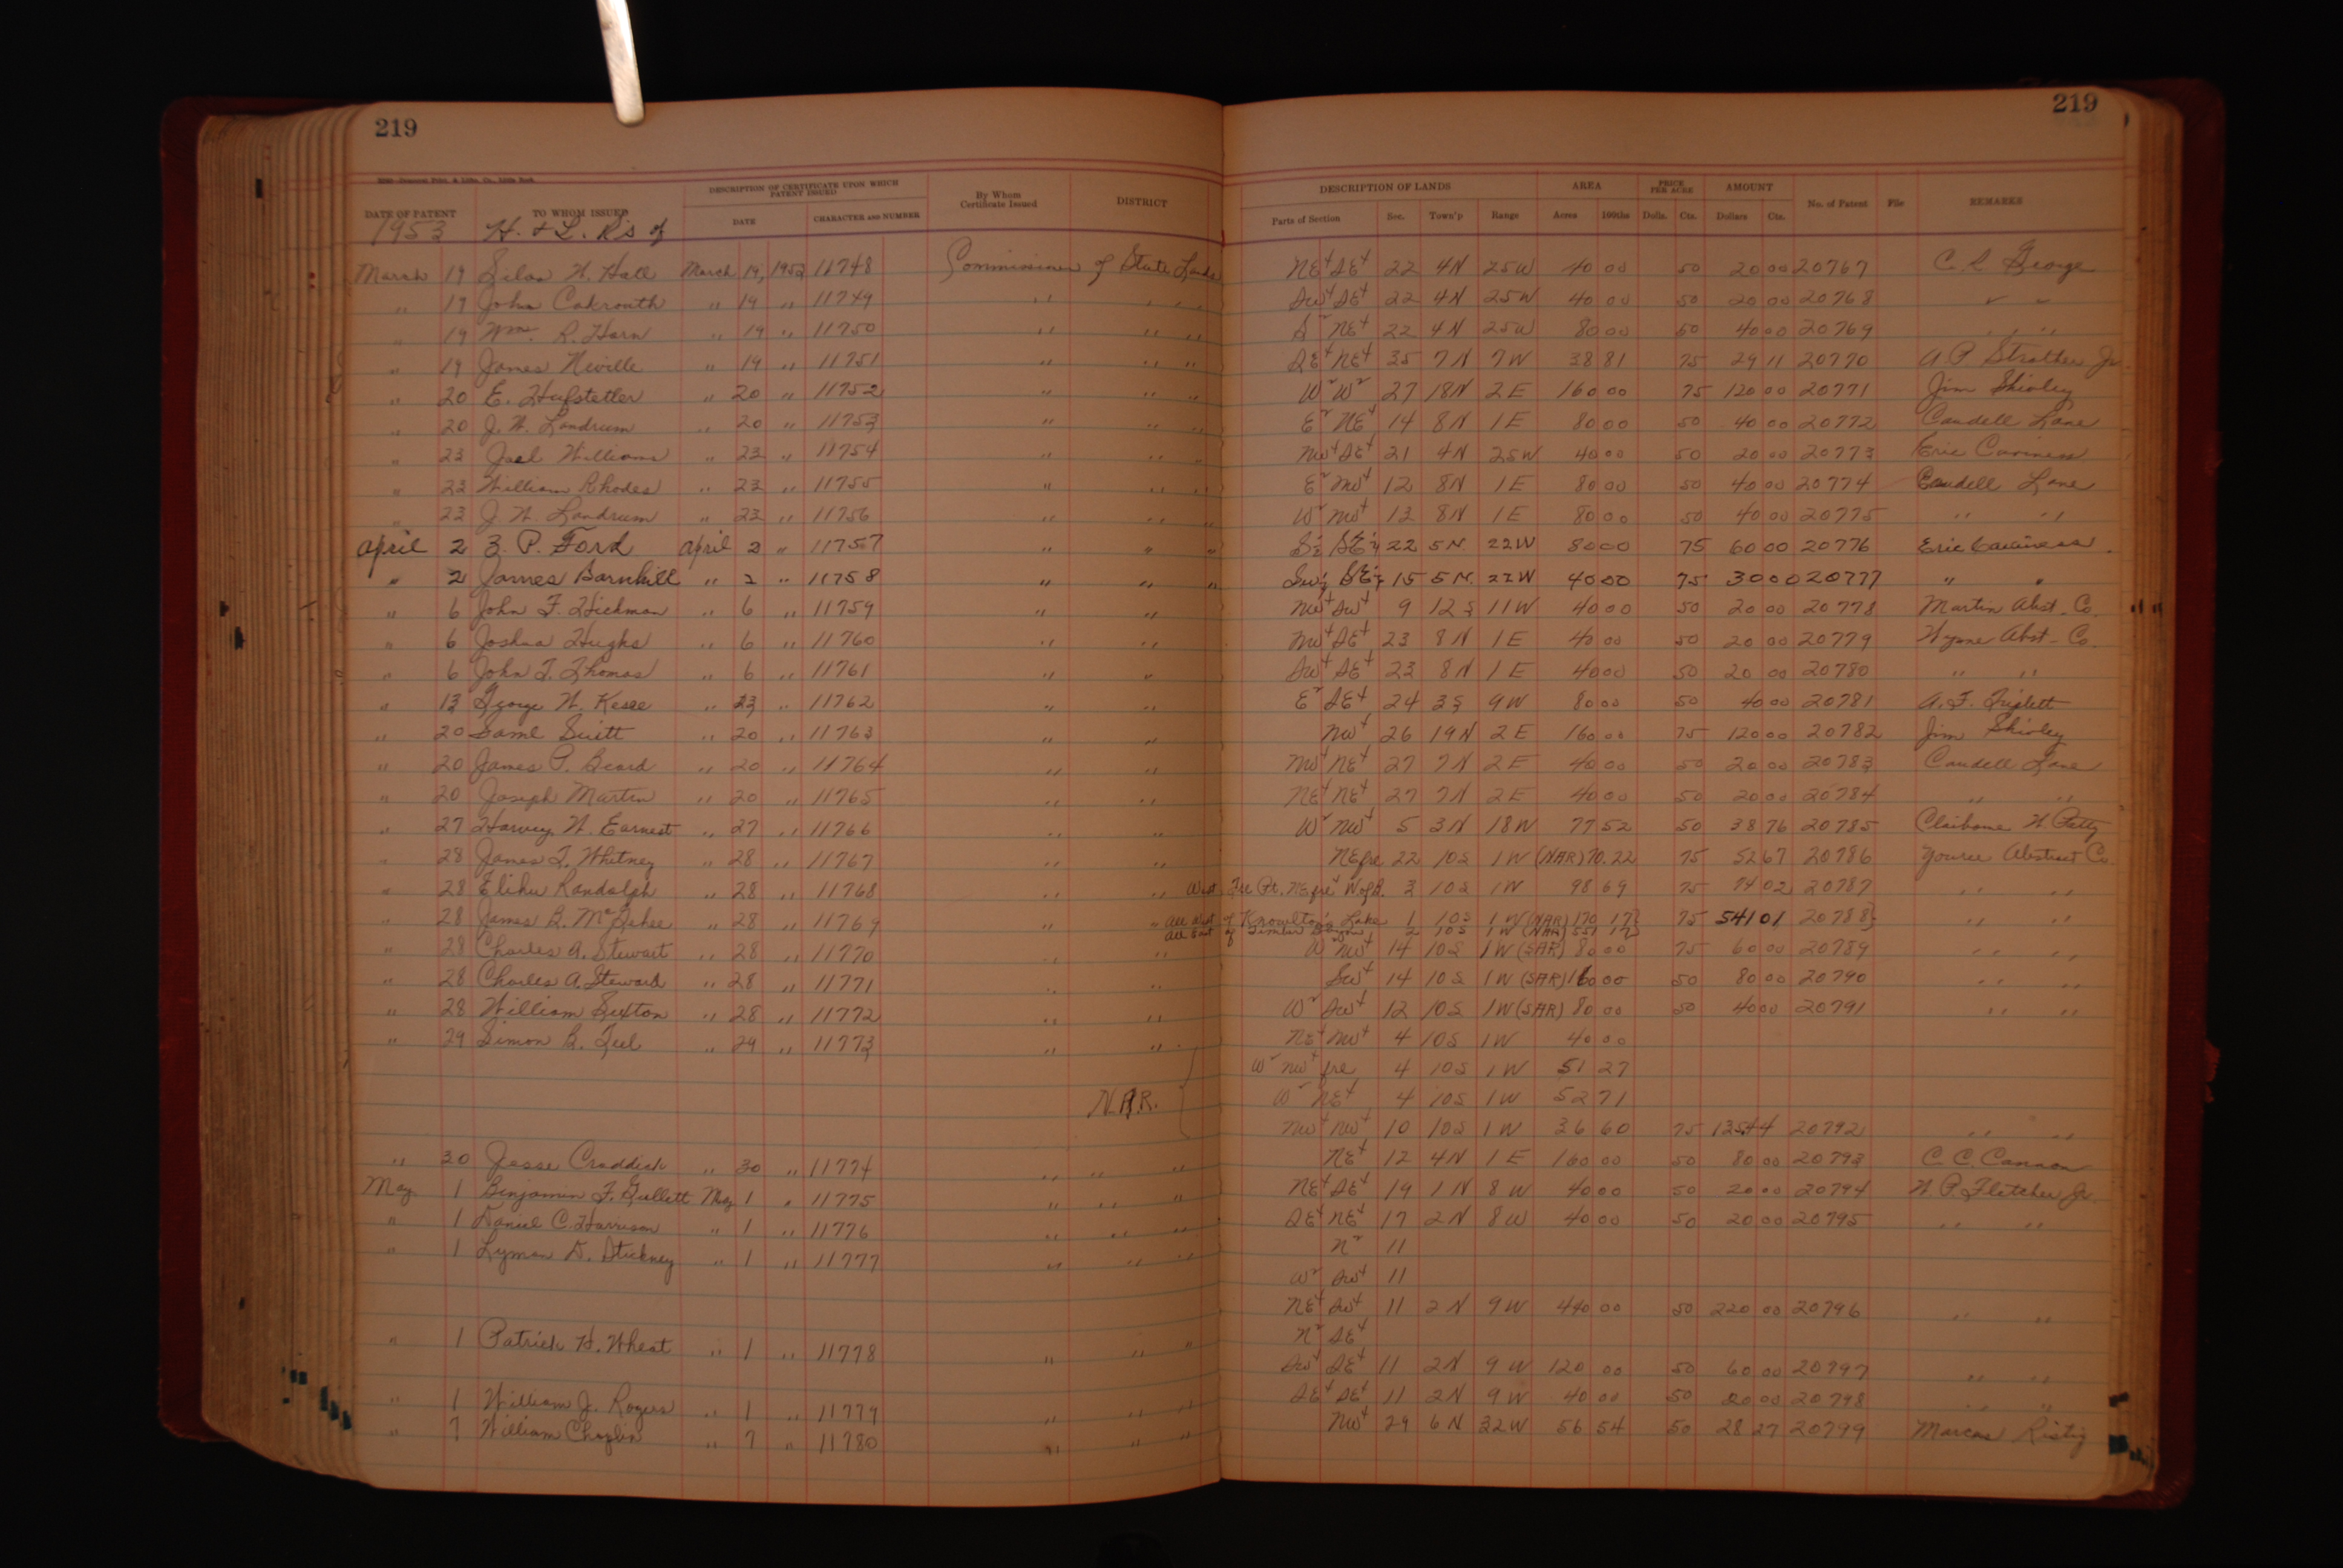 219 219
DESCRIPTION OF CERTIFICATE UPON WHICH PATENT ISSUED
DATE OF PATENT TO WHOM ISSUED DATE CHARACTER AND NUMBER By Whom Certificate Issued DISTRICT DESCRIPTION OF LANDS AREA PRICE PER ACRE AMOUNT No. of Patent File REMARKS
Parts of Section Sec. Town'p Range Acres 100ths Dolls. Cts. Dollars Cts.
1953 H. & L. R's of
March 19 Silas W. Hall March 19, 1953 11748 Commissioner of State Lands NE¼ SE¼ 22 4N 25W 40 00 50 20 00 20767 C. R. George
" 19 John Cakrouth " 19 " 11749 " " " SW¼ SE¼ 22 4N 25W 40 00 50 20 00 20768 " "
" 19 Wm. R. Harn " 19 " 11750 " " " S² NE¼ 22 4N 25W 80 00 50 40 00 20769 " "
" 19 James Neville " 19 " 11751 " " " SE¼ NE¼ 35 7N 7W 38 81 75 29 11 20770 A. P. Strother Jr
" 20 E. Hufstetler " 20 " 11752 " " " W² W² 27 18N 2E 160 00 75 120 00 20771 Jim Shirley
" 20 J. W. Landrum " 20 " 11753 " " " E² NE¼ 14 8N 1E 80 00 50 40 00 20772 Caudell Lane
" 23 Joel Williams " 23 " 11754 " " " NW¼ SE¼ 21 4N 25W 40 00 50 20 00 20773 Eric Caviness
" 23 William Rhodes " 23 " 11755 " " " E² NW¼ 12 8N 1E 80 00 50 40 00 20774 Caudell Lane
" 23 J. W. Landrum " 23 " 11756 " " " W² NW¼ 13 8N 1E 80 00 50 40 00 20775 " "
April 2 Z. P. Ford April 2 " 11757 " " " S½ SE¼ 22 5N. 22W 80 00 75 60 00 20776 Eric Caviness.
" 2 James Barnhill " 2 " 11758 " " " SW¼ SE¼ 15 5N. 22W 40 00 75 30 00 20777 " "
" 6 John F. Hickman " 6 " 11759 " " NW¼ SW¼ 9 12S 11W 40 00 50 20 00 20778 Martin Abst. Co.
" 6 Joshua Hughs " 6 " 11760 " " NW¼ SE¼ 23 8N 1E 40 00 50 20 00 20779 Wynne Abst. Co.
" 6 John T. Thomas " 6 " 11761 " " SW¼ SE¼ 23 8N 1E 40 00 50 20 00 20780 " "
" 13 George W. Kesee " 23 " 11762 " " E² SE¼ 24 3S 9W 80 00 50 40 00 20781 A. F. Triplett
" 20 Saml Suitt " 20 " 11763 " " NW¼ 26 19N 2E 160 00 75 120 00 20782 Jim Shirley
" 20 James P. Beard " 20 " 11764 " " NW¼ NE¼ 27 7N 2E 40 00 50 20 00 20783 Caudell Lane
" 20 Joseph Martin " 20 " 11765 " " NE¼ NE¼ 27 7N 2E 40 00 50 20 00 20784 " "
" 27 Harvey W. Earnest " 27 " 11766 " " W² NW¼ 5 3N 18W 77 52 50 38 76 20785 Claiborne W. Patty
" 28 James T. Whitney " 28 " 11767 " " NE fre 22 10S 1W (NAR) 70.22 75 52 67 20786 Youree Abstract Co.
" 28 Elihu Randolph " 28 " 11768 " " West Fre Pt. NE fre¼ W of B. 3 10S 1W 98 69 75 74 02 20787 " "
" 28 James B. McGehee " 28 " 11769 " " All West of Knowlton's Lake 1 10S 1W (NAR) 170 17 75 541 01 20788 " "
All East of Timber Bayou 2 10S 1W (NAR) 551 17
" 28 Charles A. Stewart " 28 " 11770 " " W² NW¼ 14 10S 1W (SAR) 80 00 75 60 00 20789 " "
" 28 Charles A. Steward " 28 " 11771 " " SW¼ 14 10S 1W (SAR) 160 00 50 80 00 20790 " "
" 28 William Sexton " 28 " 11772 " " W² SW¼ 12 10S 1W (SAR) 80 00 50 40 00 20791 " "
" 29 Simon B. Teel " 29 " 11773 " " NE¼ NW¼ 4 10S 1W 40 00
W² NW¼ fre 4 10S 1W 51 27
N.A.R. W² NE¼ 4 10S 1W 52 71
NW¼ NW¼ 10 10S 1W 36 60 75 135 44 20792 " "
" 30 Jesse Craddick " 30 " 11774 " " " NE¼ 12 4N 1E 160 00 50 80 00 20793 C. C. Cannon
May 1 Benjamin F. Gullett May 1 " 11775 " " " NE¼ SE¼ 19 1N 8W 40 00 50 20 00 20794 W. P. Fletcher Jr.
" 1 Daniel C. Harrison " 1 " 11776 " " " SE¼ NE¼ 17 2N 8W 40 00 50 20 00 20795 " "
" 1 Lyman D. Stickney " 1 " 11777 " " " N² 11
W² SW¼ 11
NE¼ SW¼ 11 2N 9W 440 00 50 220 00 20796 " "
" 1 Patrick H. Wheat " 1 " 11778 " " " N² SE¼
SW¼ SE¼ 11 2N 9W 120 00 50 60 00 20797 " "
" 1 William J. Rogers " 1 " 11779 " " " SE¼ SE¼ 11 2N 9W 40 00 50 20 00 20798 " "
" 7 William Chaplin " 7 " 11780 " " " NW¼ 29 6N 32W 56 54 50 28 27 20799 Marcus Ristig